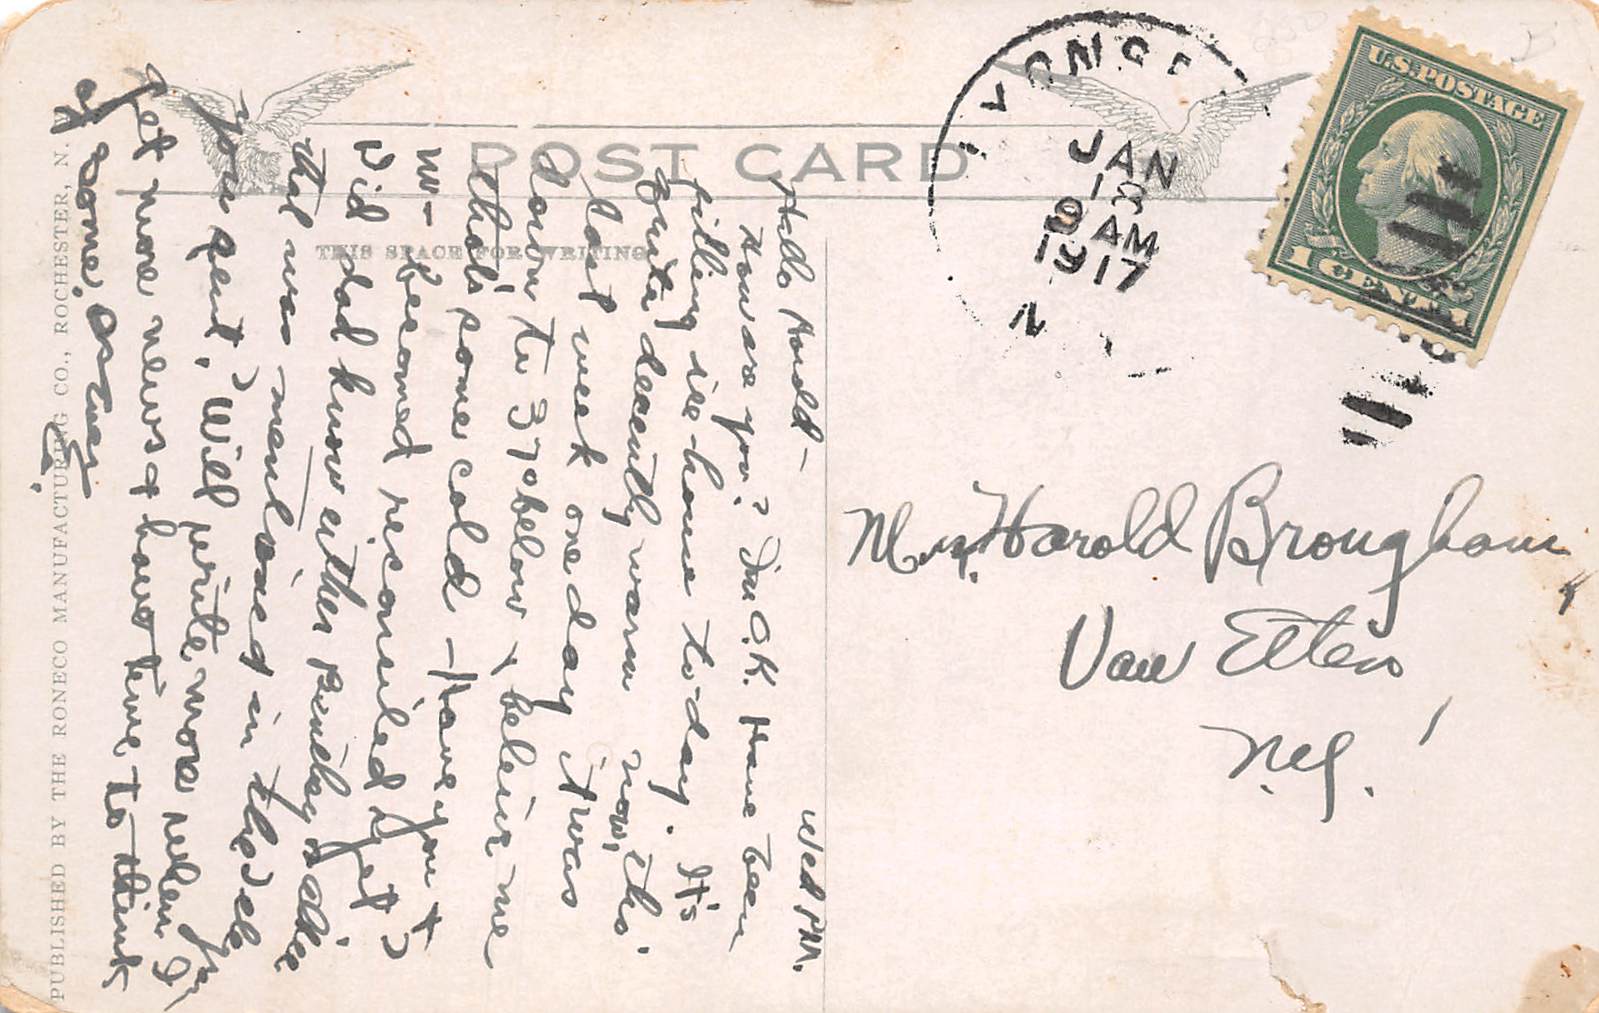 POST CARD
THIS SPACE FOR WRITING
LYONS
JAN
18
9 AM
1917
N
U.S. POSTAGE
1 CENT 1
Wed P.M.
Hello Harold -
How are you? I'm O.K. Have been
filling ice-house to-day. It's
quite decently warm now, tho'
last week one day it was
down to 37° below & believe me
that's some cold - Haven't you
Did dad know either Bentley or
that was mentioned in the
you sent. Will write more when I
get more news & have time to think
of some.
Mrs. Harold Brougham
Van Etten
N.Y.
PUBLISHED BY THE RONECO MANUFACTURING CO., ROCHESTER, N. Y.